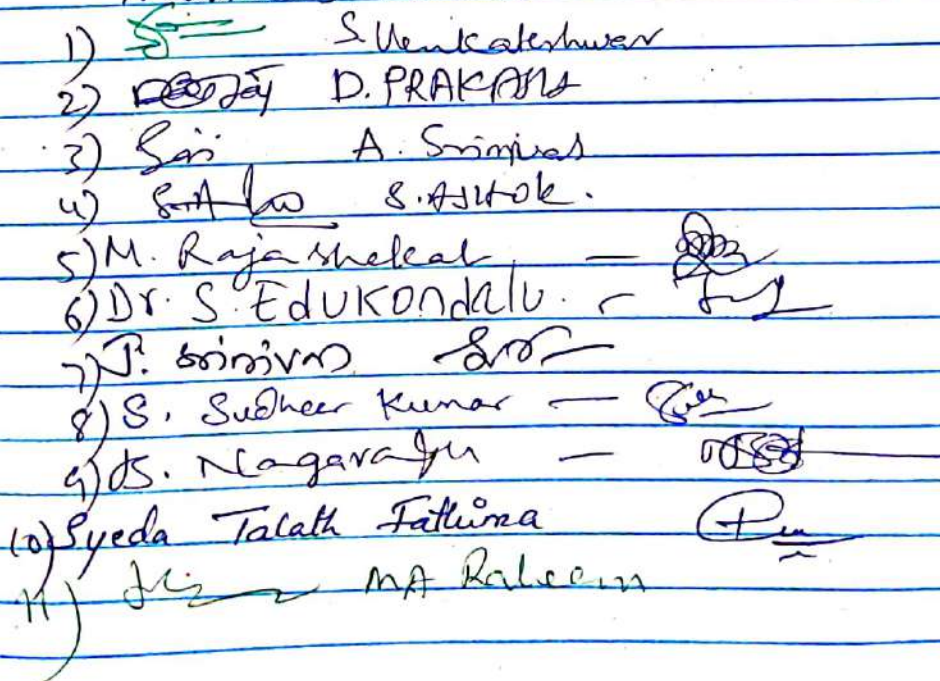 1) S. Venkateshwar
2) D. PRAKASH
3) Sri A. Srinivas
4) S. ASHOK.
5) M. Rajashekar —
6) Dr. S. EDUKONDALU. -
7) P. Srinivas
8) S. Sudheer Kumar —
9) B. Nagaraju —
10) Syeda Talath Fathima
11) MA Raheem